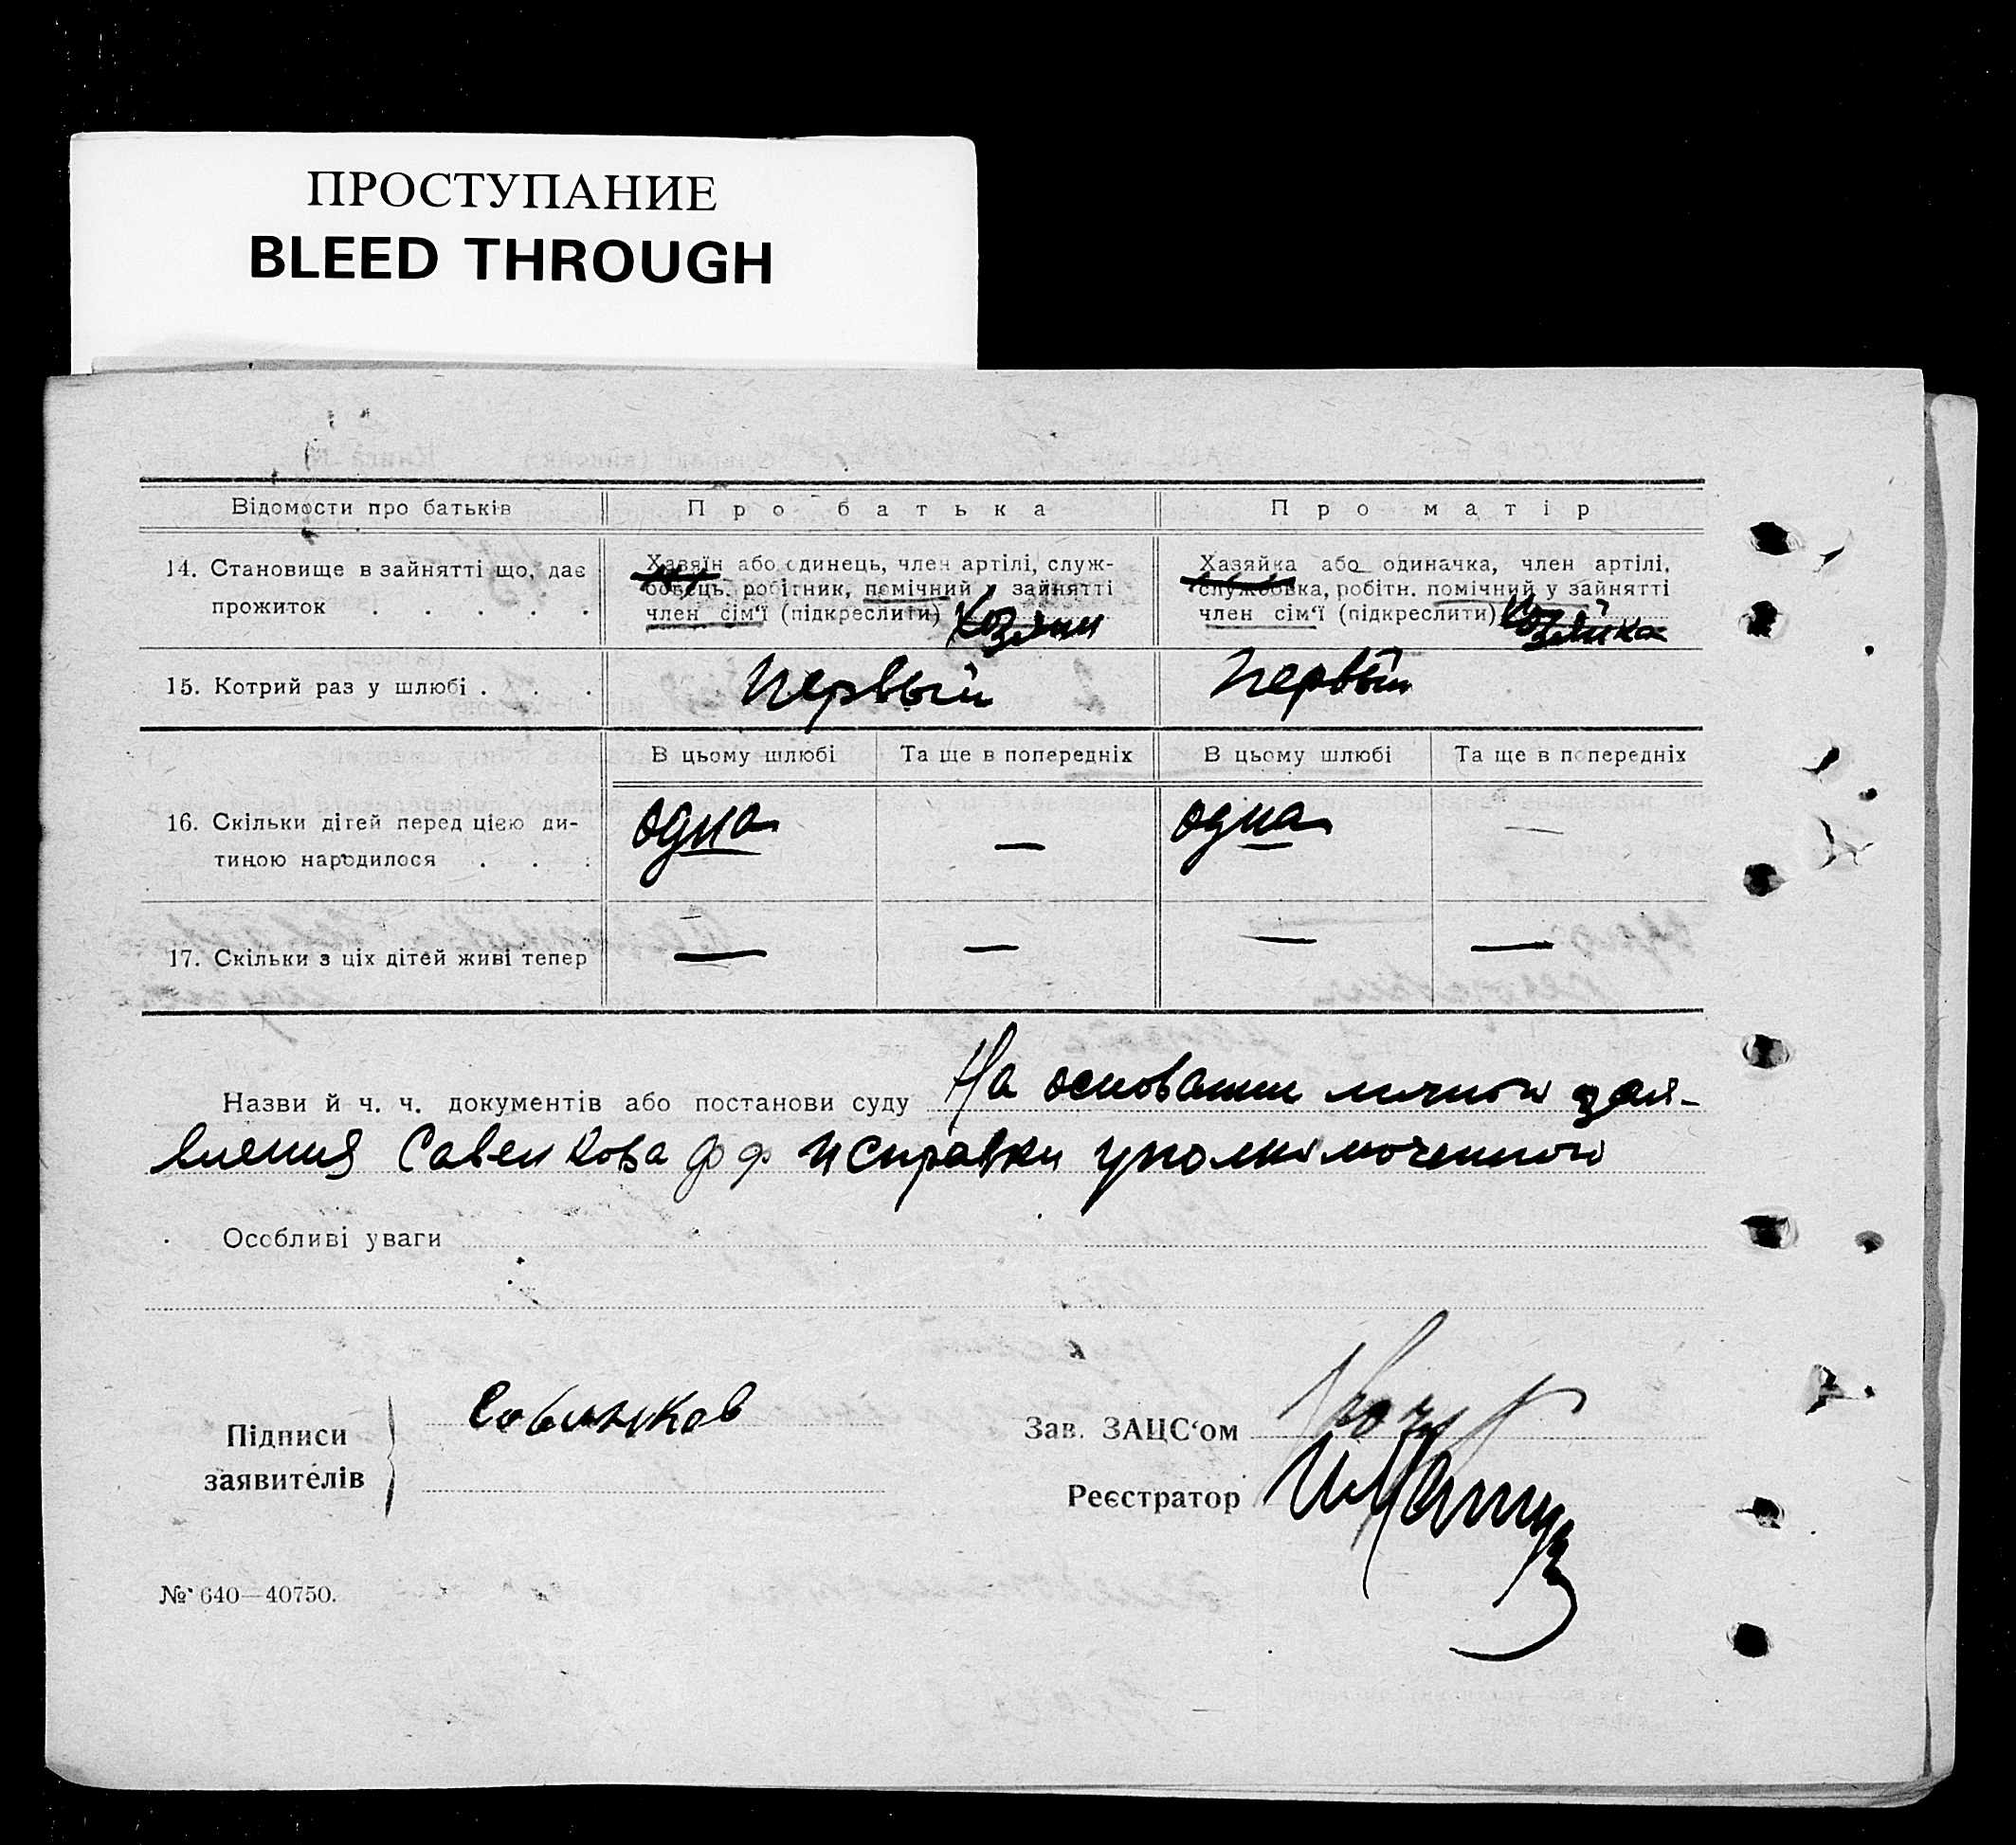 ПРОСТУПАНИЕ
BLEED THROUGH
Відомости про батьків
Про батька
Про матір
14. Становище в зайнятті що, дає
прожиток . . . . .
Хазяїн або одинець, член артілі, служ-
бовець, робітник, помічний у зайнятті
член сім'ї (підкреслити) Хозяин
Хазяйка або одиначка, член артілі,
службовка, робітн. помічний у зайнятті
член сім'ї (підкреслити) Хозяйка
15. Котрий раз у шлюбі . . .
Первый
Первый
В цьому шлюбі
Та ще в попередніх
В цьому шлюбі
Та ще в попередніх
16. Скільки дітей перед цією ди-
тиною народилося . . .
одна
—
одна
—
17. Скільки з ціх дітей живі тепер
—
—
—
—
Назви й ч. ч. документів або постанови суду На основании личного заяв-
вления Савенкова ф ф и справки уполномоченного
Особливі уваги
Підписи
заявителів
Савенков
Зав. ЗАЦС‘ом
Реєстратор
№ 640—40750.